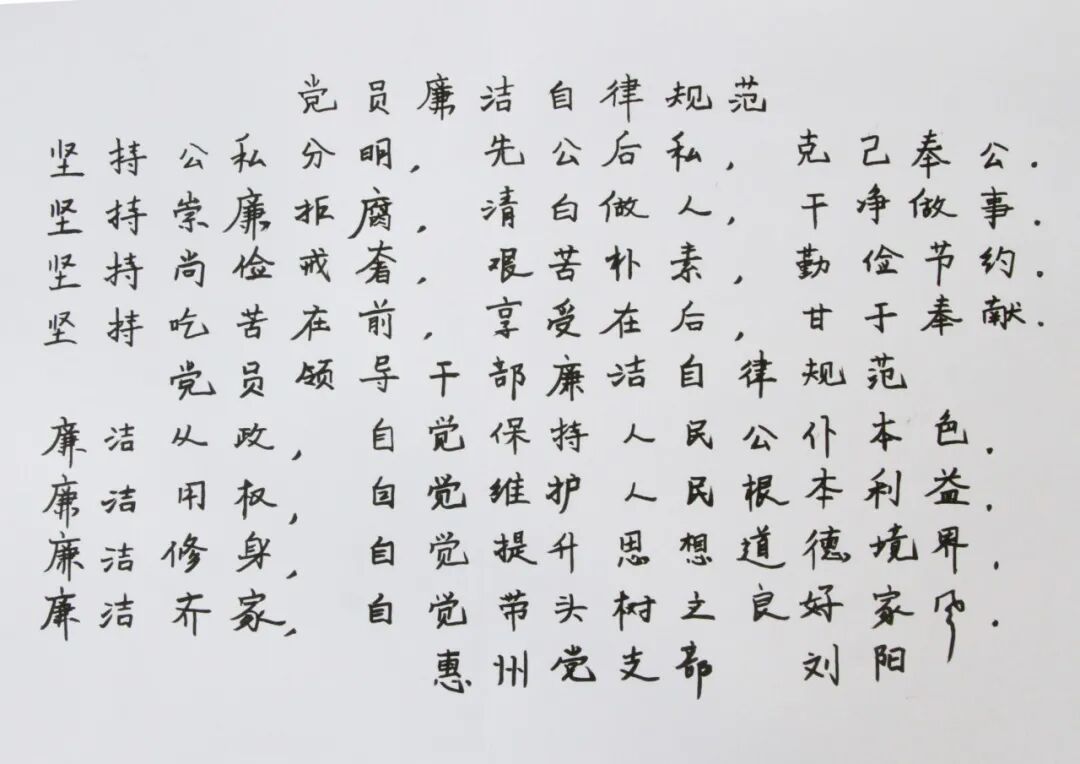 党员廉洁自律规范
坚持公私分明，先公后私，克己奉公．
坚持崇廉拒腐，清白做人，干净做事．
坚持尚俭戒奢，艰苦朴素，勤俭节约．
坚持吃苦在前，享受在后，甘于奉献．
党员领导干部廉洁自律规范
廉洁从政，自觉保持人民公仆本色．
廉洁用权，自觉维护人民根本利益．
廉洁修身，自觉提升思想道德境界．
廉洁齐家，自觉带头树立良好家风．
惠州党支部 刘阳